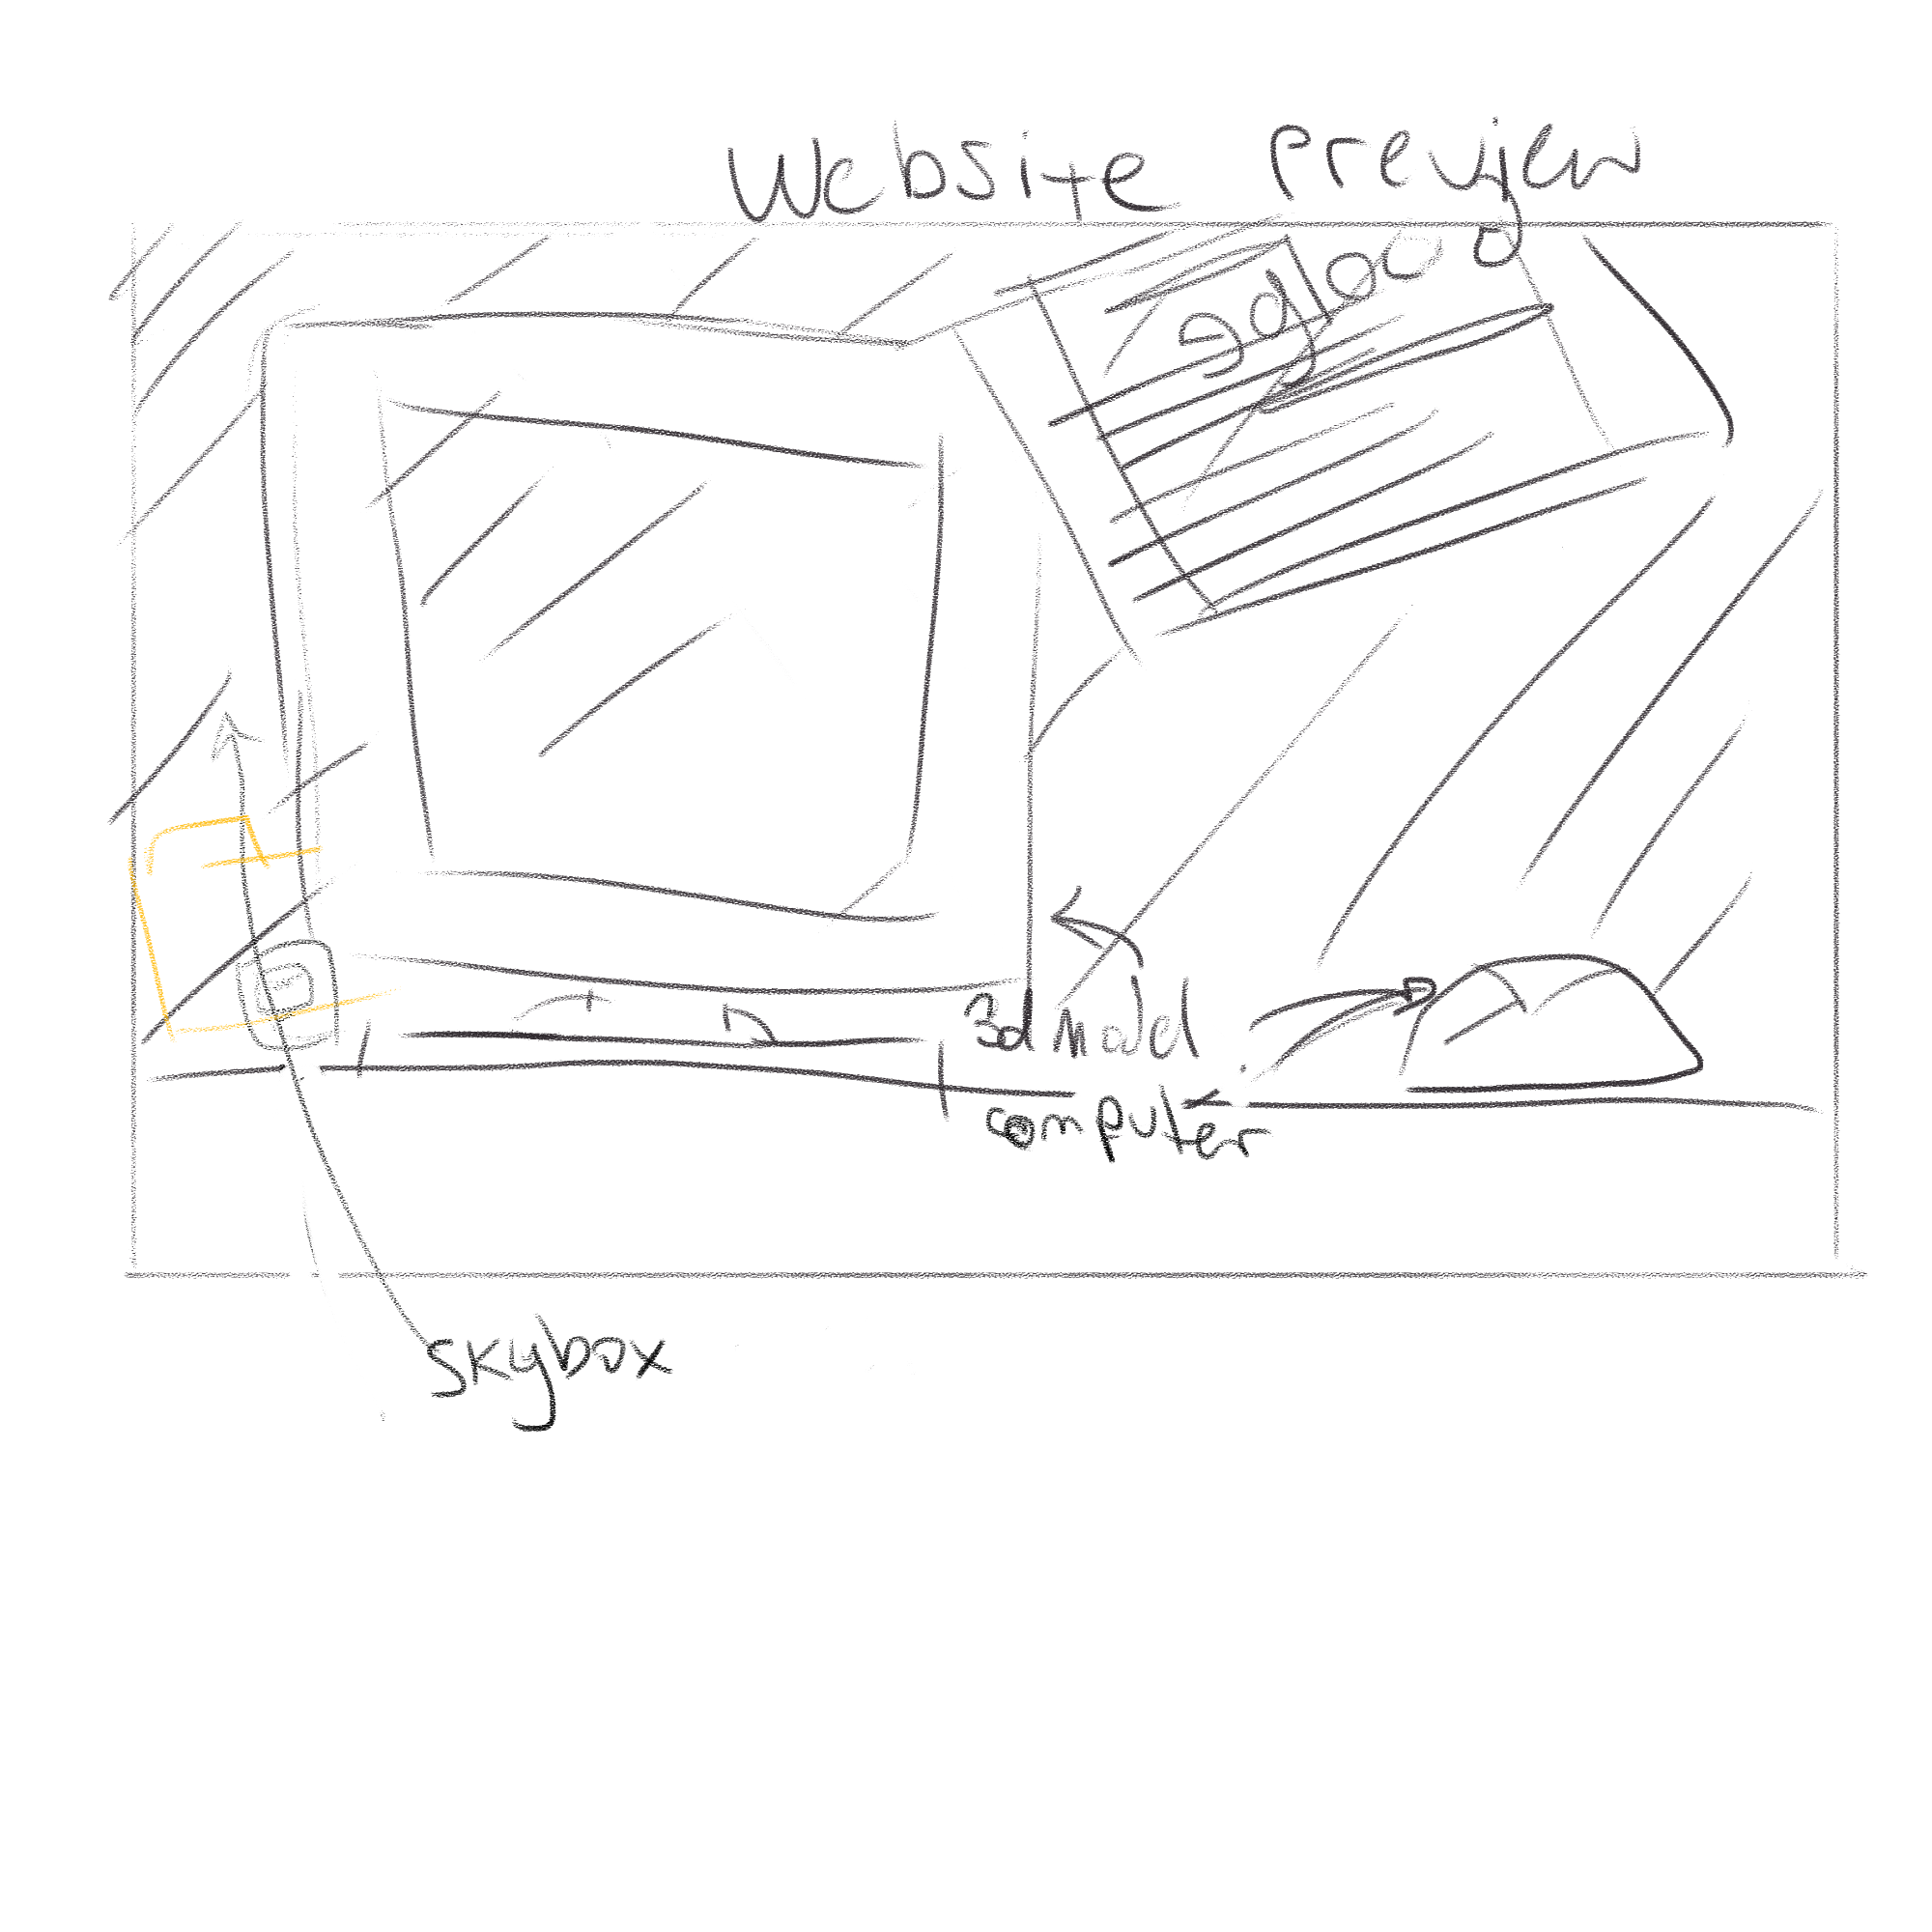 Website preview
3d model
computer
skybox